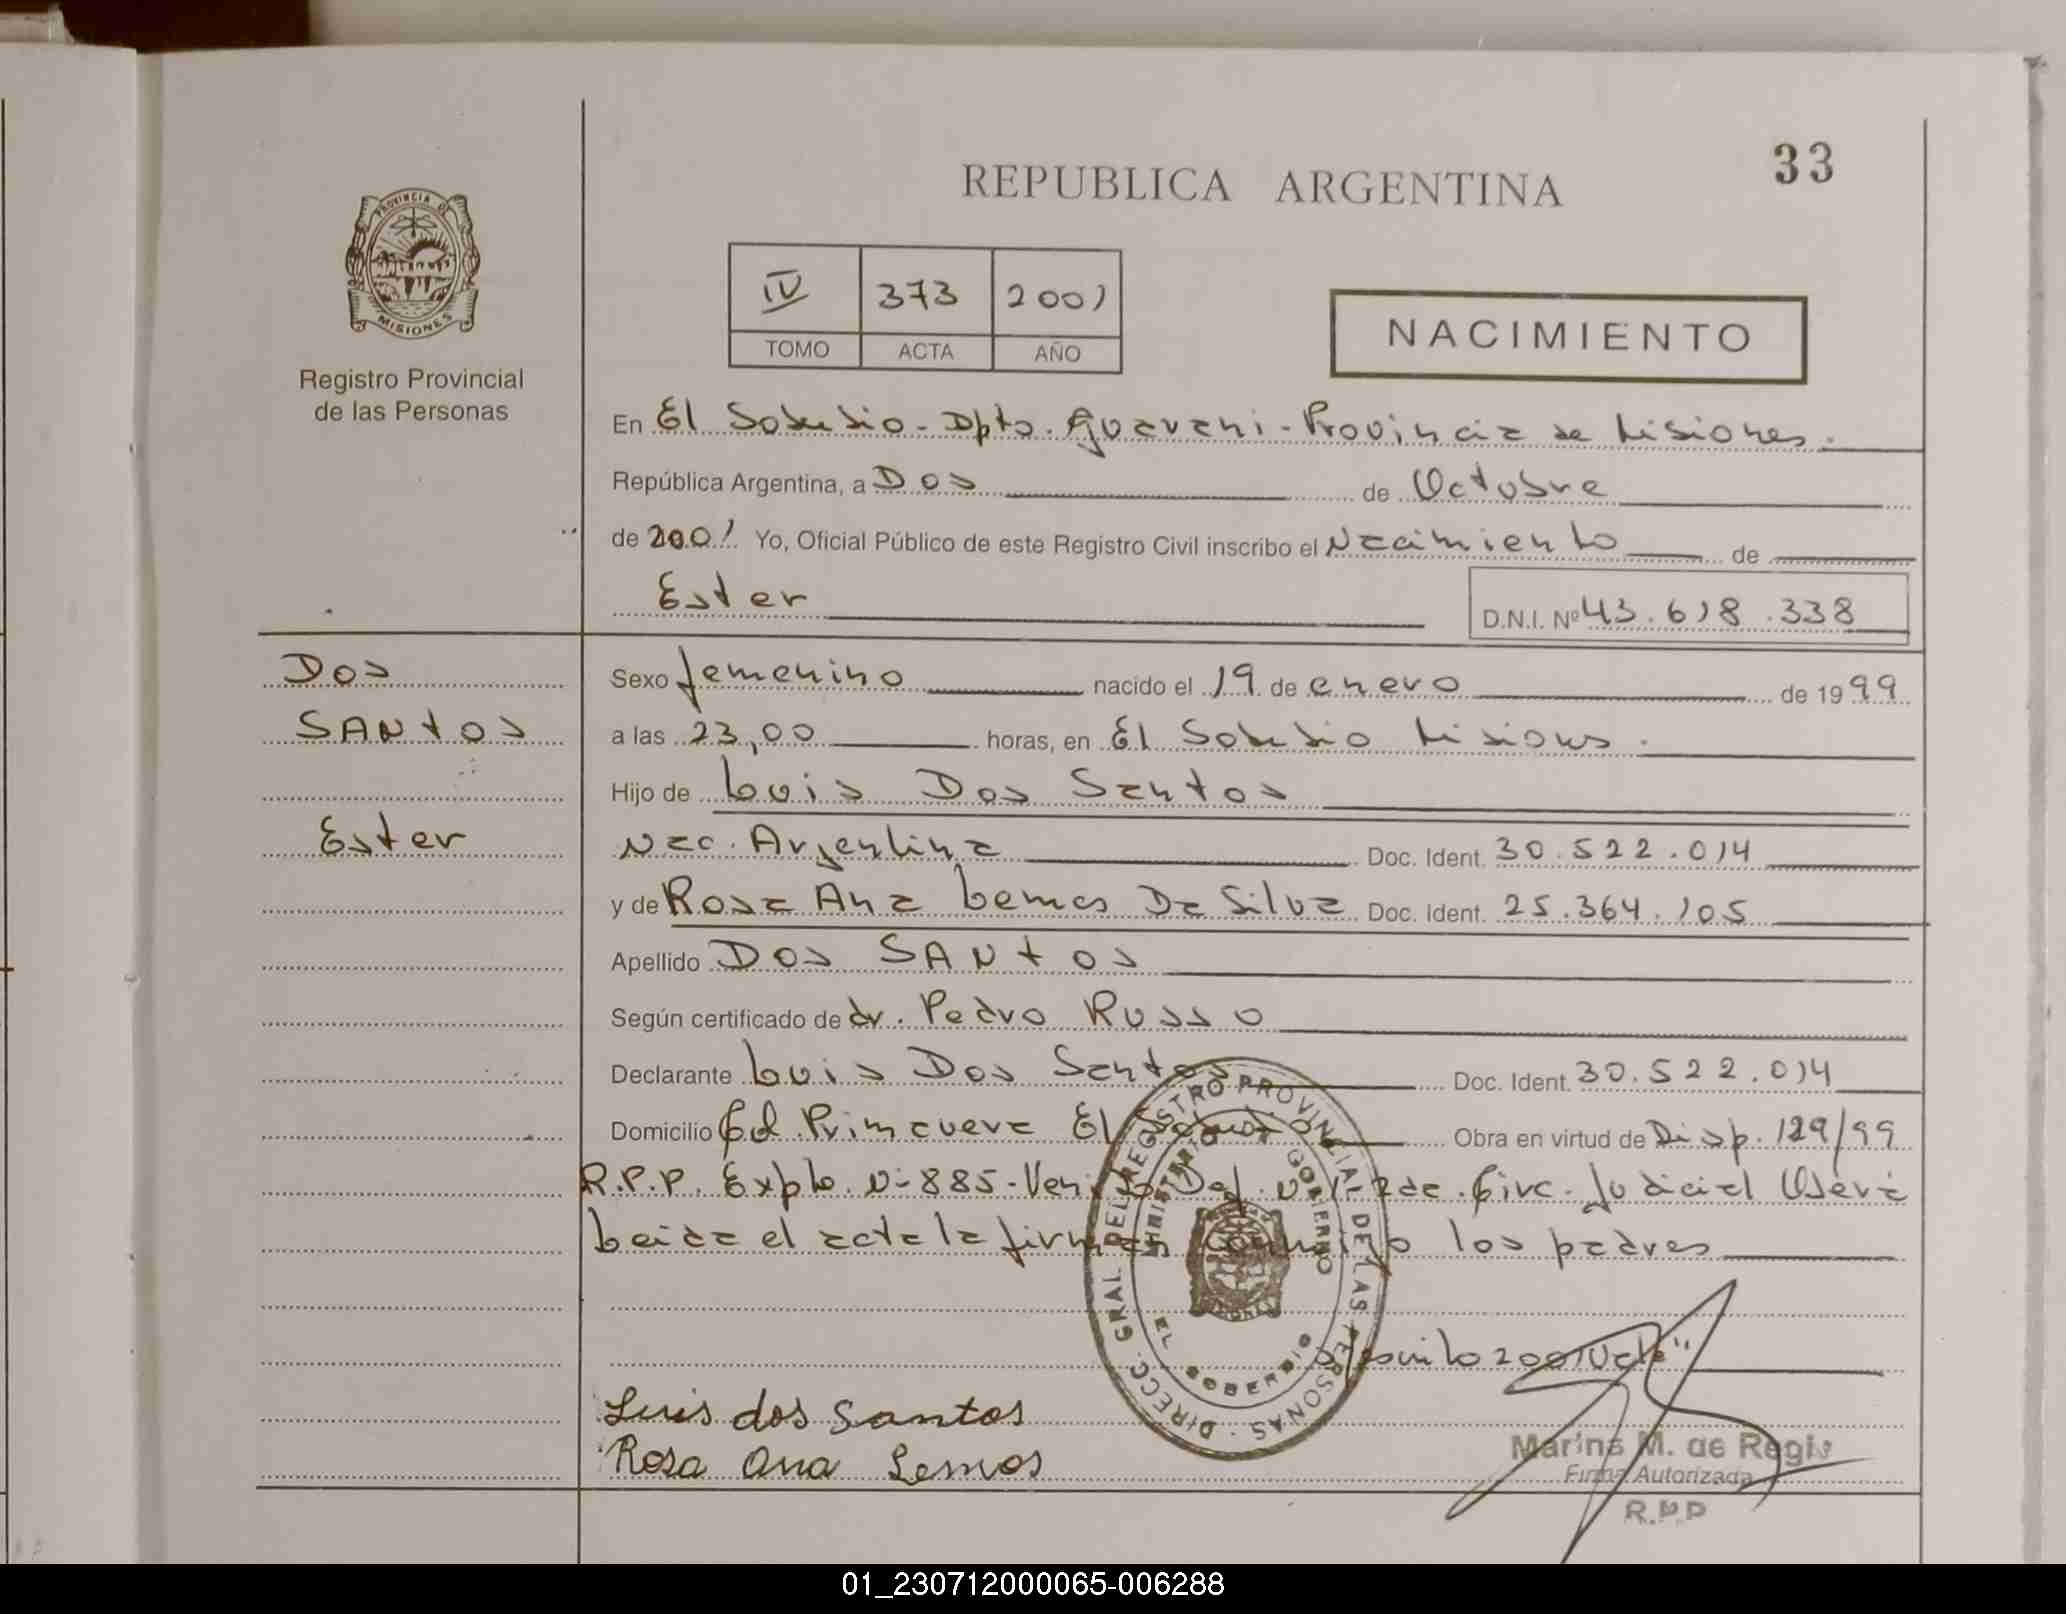 33
REPUBLICA ARGENTINA
PROVINCIA DE
MISIONES
Registro Provincial
de las Personas
IV 373 2001
TOMO ACTA AÑO
NACIMIENTO
En El Soberbio - Dpto. Guarani - Provincia de Misiones.
República Argentina, a Dos de Octubre
de 2001 Yo, Oficial Público de este Registro Civil inscribo el Nacimiento de
Ester
D.N.I. Nº 43.618.338
DOS
SANTOS
Ester
Sexo femenino nacido el 19 de enero de 1999
a las 23,00 horas, en El Soberbio Misiones.
Hijo de Luis Dos Santos
Nac. Argentina Doc. Ident. 30.522.014
y de Rosa Ana Lemos Da Silva Doc. Ident. 25.364.105
Apellido DOS SANTOS
Según certificado de dr. Pedro Russo
Declarante Luis Dos Santos Doc. Ident. 30.522.014
Domicilio Col. Primavera El Obra en virtud de Disp. 129/99
R.P.P. Expte. N- 885- Circ. Judicial Oberá
Leida el acta la firman conmigo los padres
2001 Vale"
Luis dos Santos
Rosa Ana Lemos
DIRECC. GRAL DEL REGISTRO PROVINCIAL DE LAS PERSONAS
MINISTERIO DE GOBIERNO
EL SOBERBIO
Marina M. de Regis
Firma Autorizada
R.P.P
01_230712000065-006288